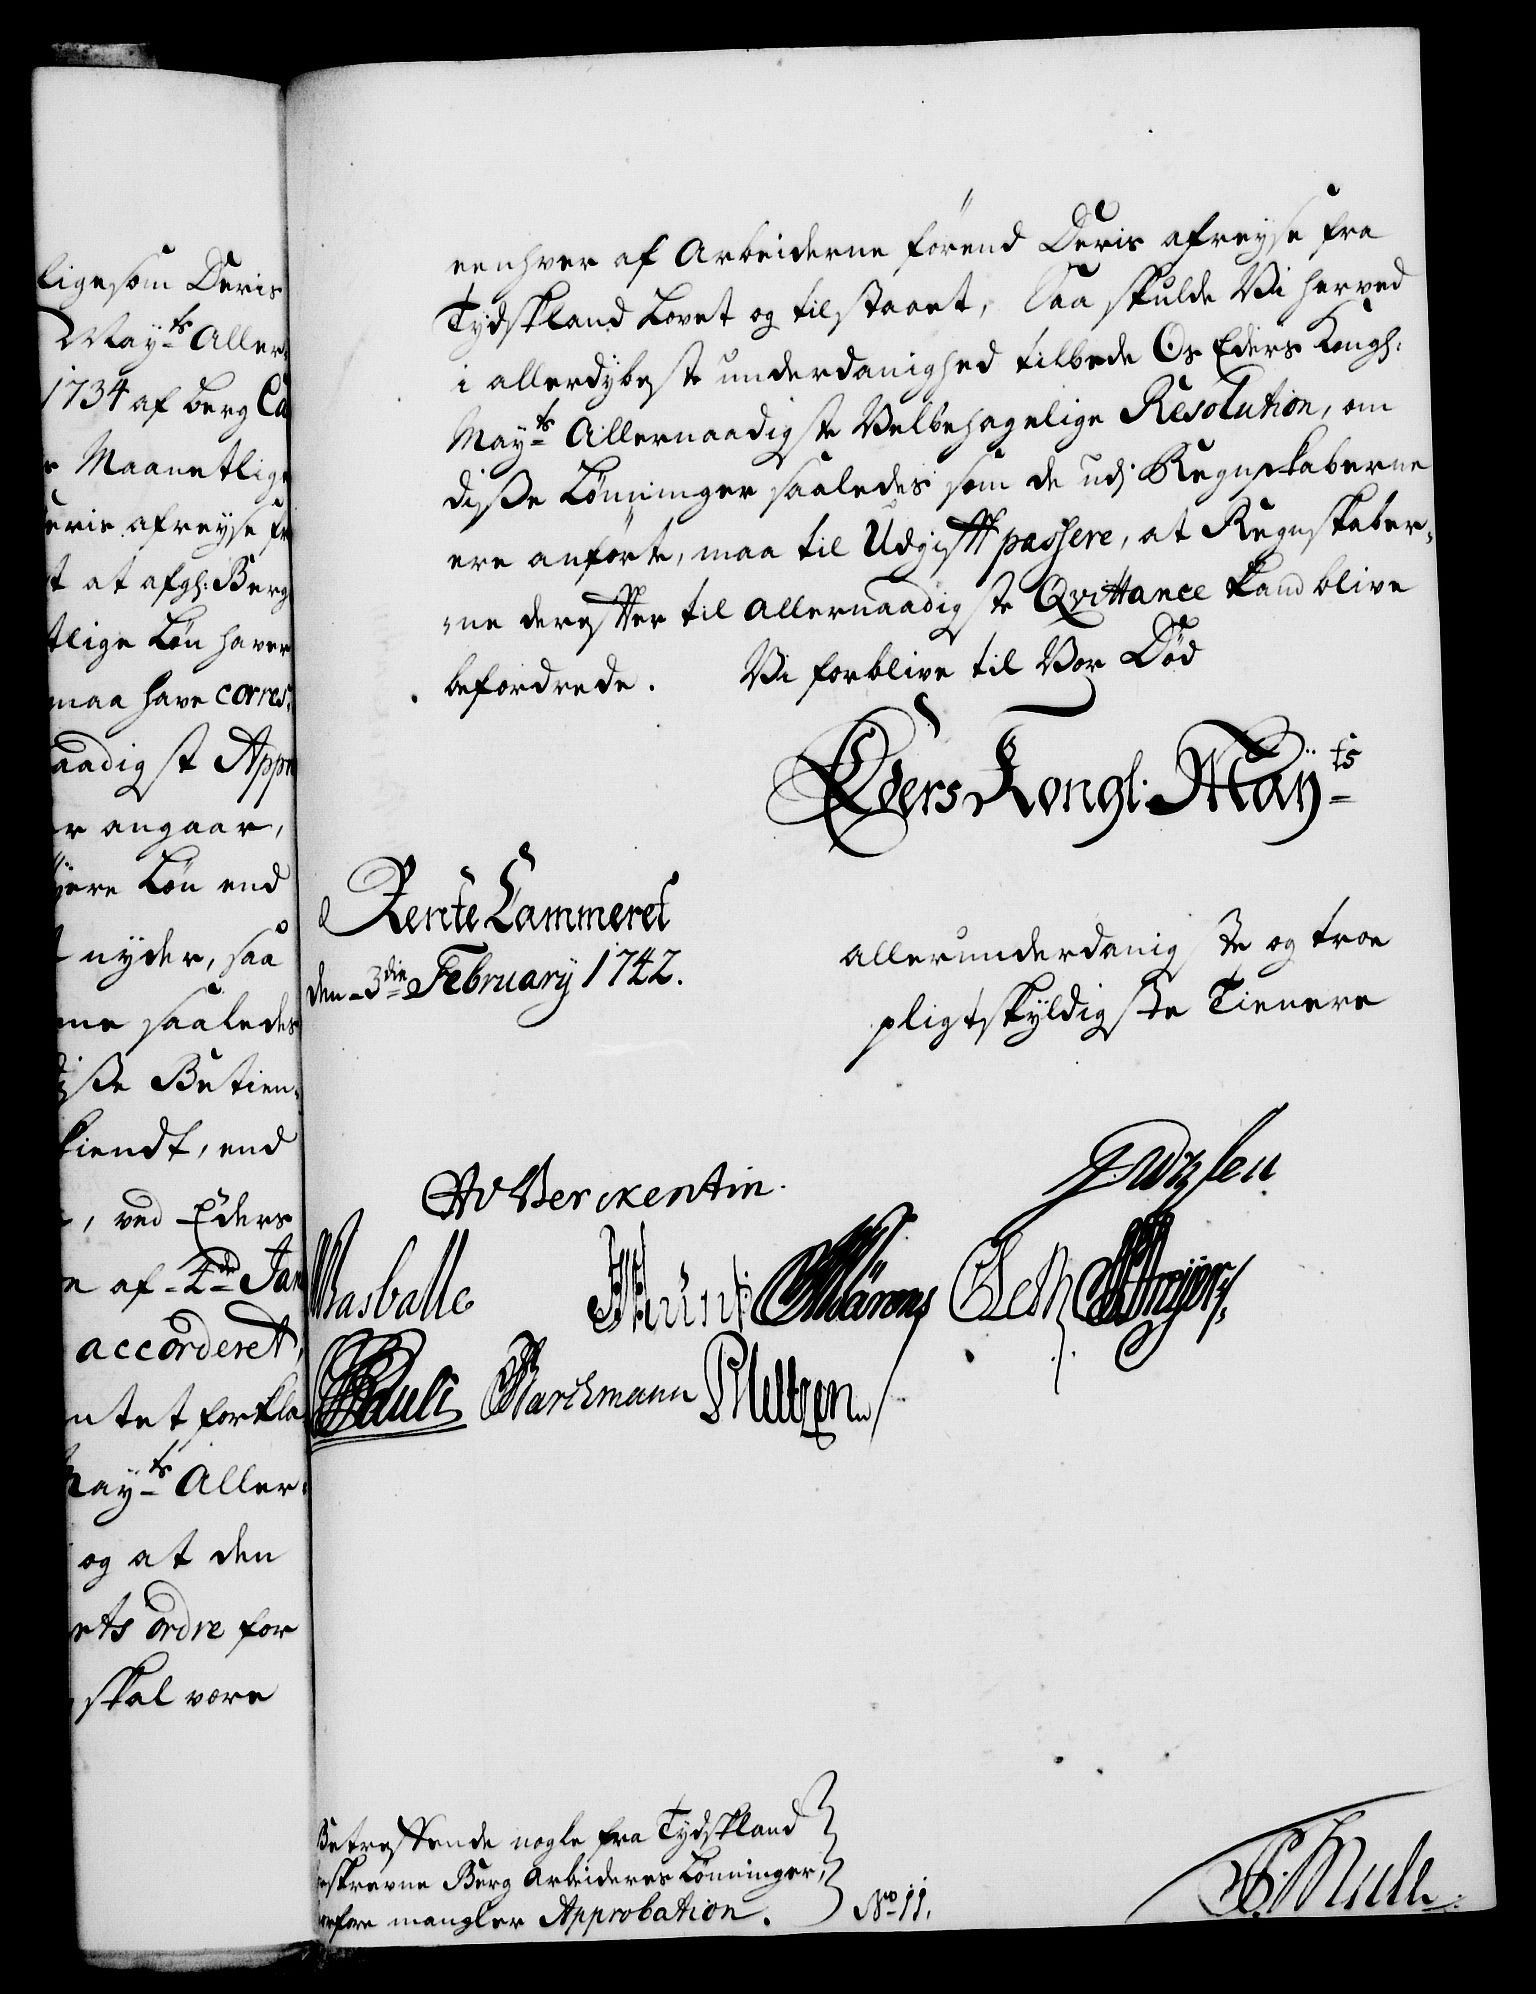 ligesom Deris
May^ts Aller-
1734 af Berg Ca
Maanetlige
Deris afreyse fr
t at afg: Berg
tlige Løn haver
maa have corres-
aadigst App
er angaar,
yere Løn end
nyder, saa
ne saaledes
diße Betien-
kiendt, end
, ved Eders
af 4de Jan
accorderet,
ntet forkla
May^ts Aller-
og at den
ets ordre for
skal være
eenhver af Arbeiderne førend Deris afreyse fra
Tydskland Lovet og tilstaaet, Saa skulde Vi herved
i allerdybeste underdanighed tilbede Os Eders Kongl:
May^ts Allernaadigste Velbehagelige Resolution, om
diße Lønninger saaledes som de udj Regnskaberne
ere anførte, maa til Udgift passere, at Regnskaber-
-ne derefter til allernaadigste Qvittance kand blive
befordrede. Vi forblive til Vor Død
Eders Kongl: Maÿ^ts
Rente Cammeret
den 3die February 1742.
allerunderdanigste og troe
pligtskyldigste Tienere
Av Berckentin.
Basballe
Pauli Marckmann
Betreffende nogle fra Tydskland
eskrevne Berg Arbeideres Lønninger,
orfore mangler Approbation.
No 11.